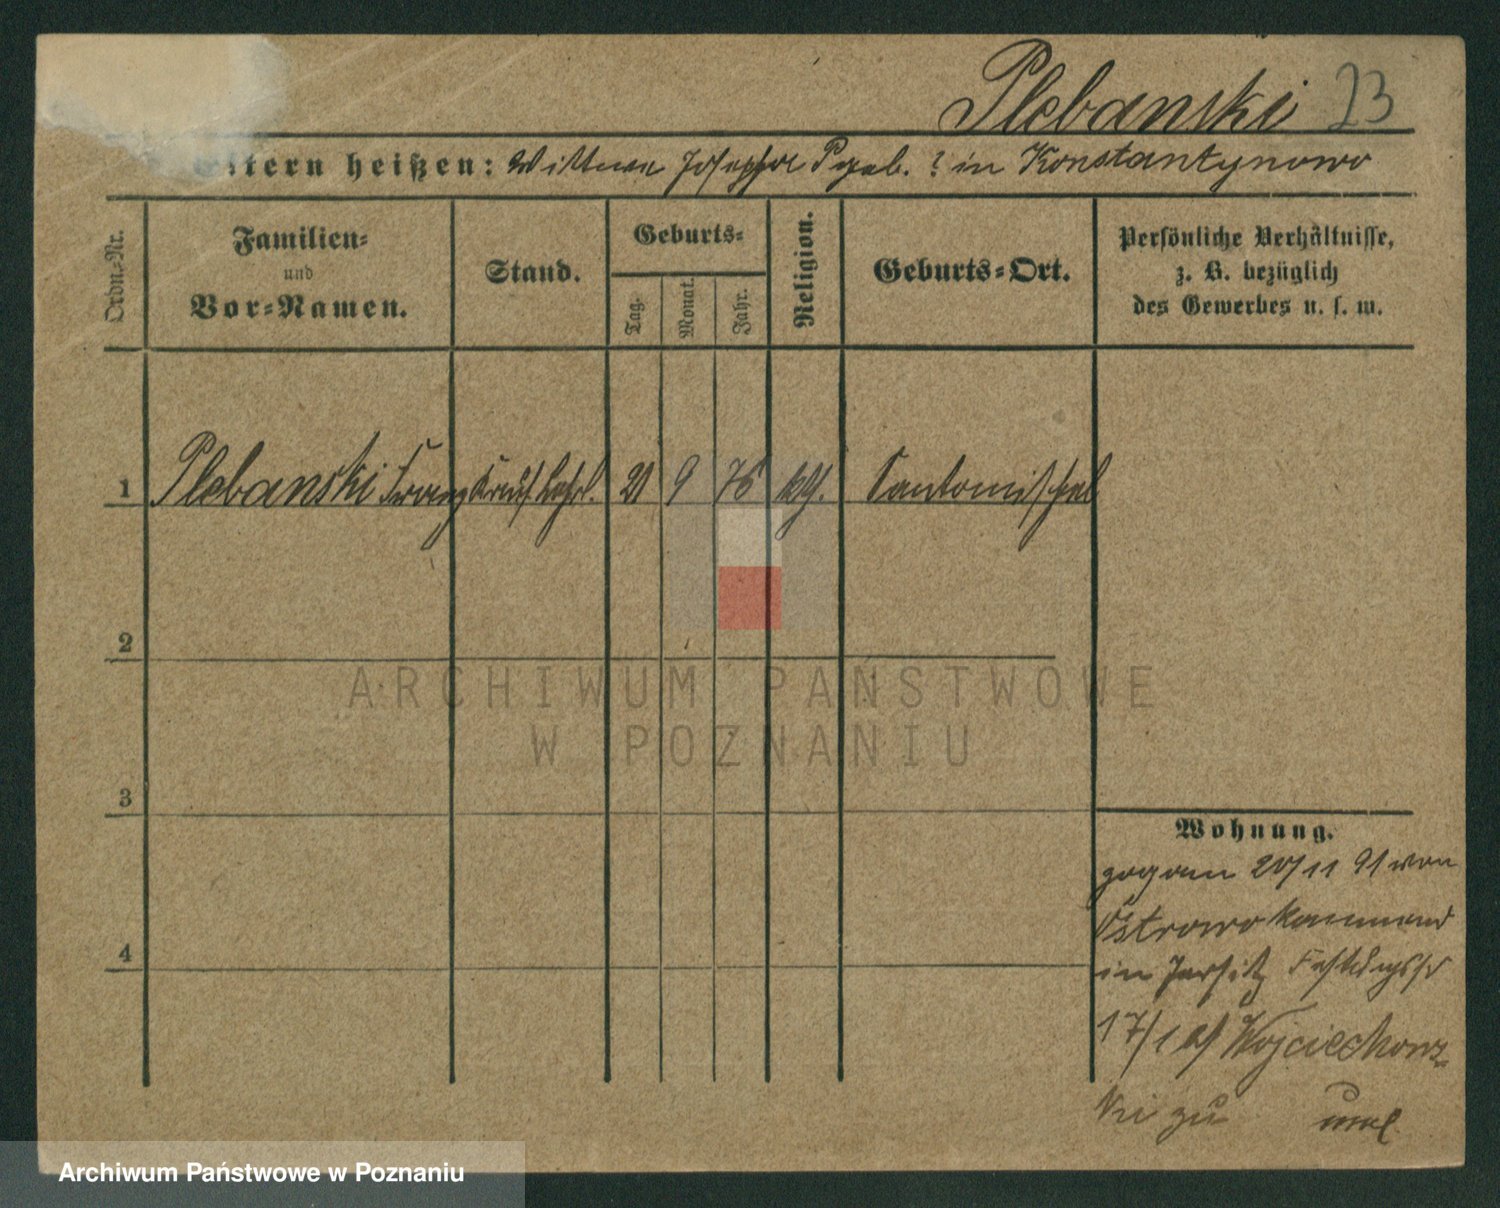 Plebanski 23
Eltern heißen: Wittwe Josepha P geb. ? in Konstantynowo
Ordn.-Nr.
Familien-
und
Vor-Namen.
Stand.
Geburts-
Tag.
Monat.
Jahr.
Religion.
Geburts-Ort.
Persönliche Verhältnisse,
z. B. bezüglich
des Gewerbes u. s. w.
1 Plebanski Franz 21 9 76 kth. Santomischel
2
3
4
ARCHIWUM PAŃSTWOWE
W POZNANIU
Wohnung.
zog am 20/11 91 von
Ostrowo kommend
in Jersitz
17/1 bei Wojciechows-
ki zu
Archiwum Państwowe w Poznaniu